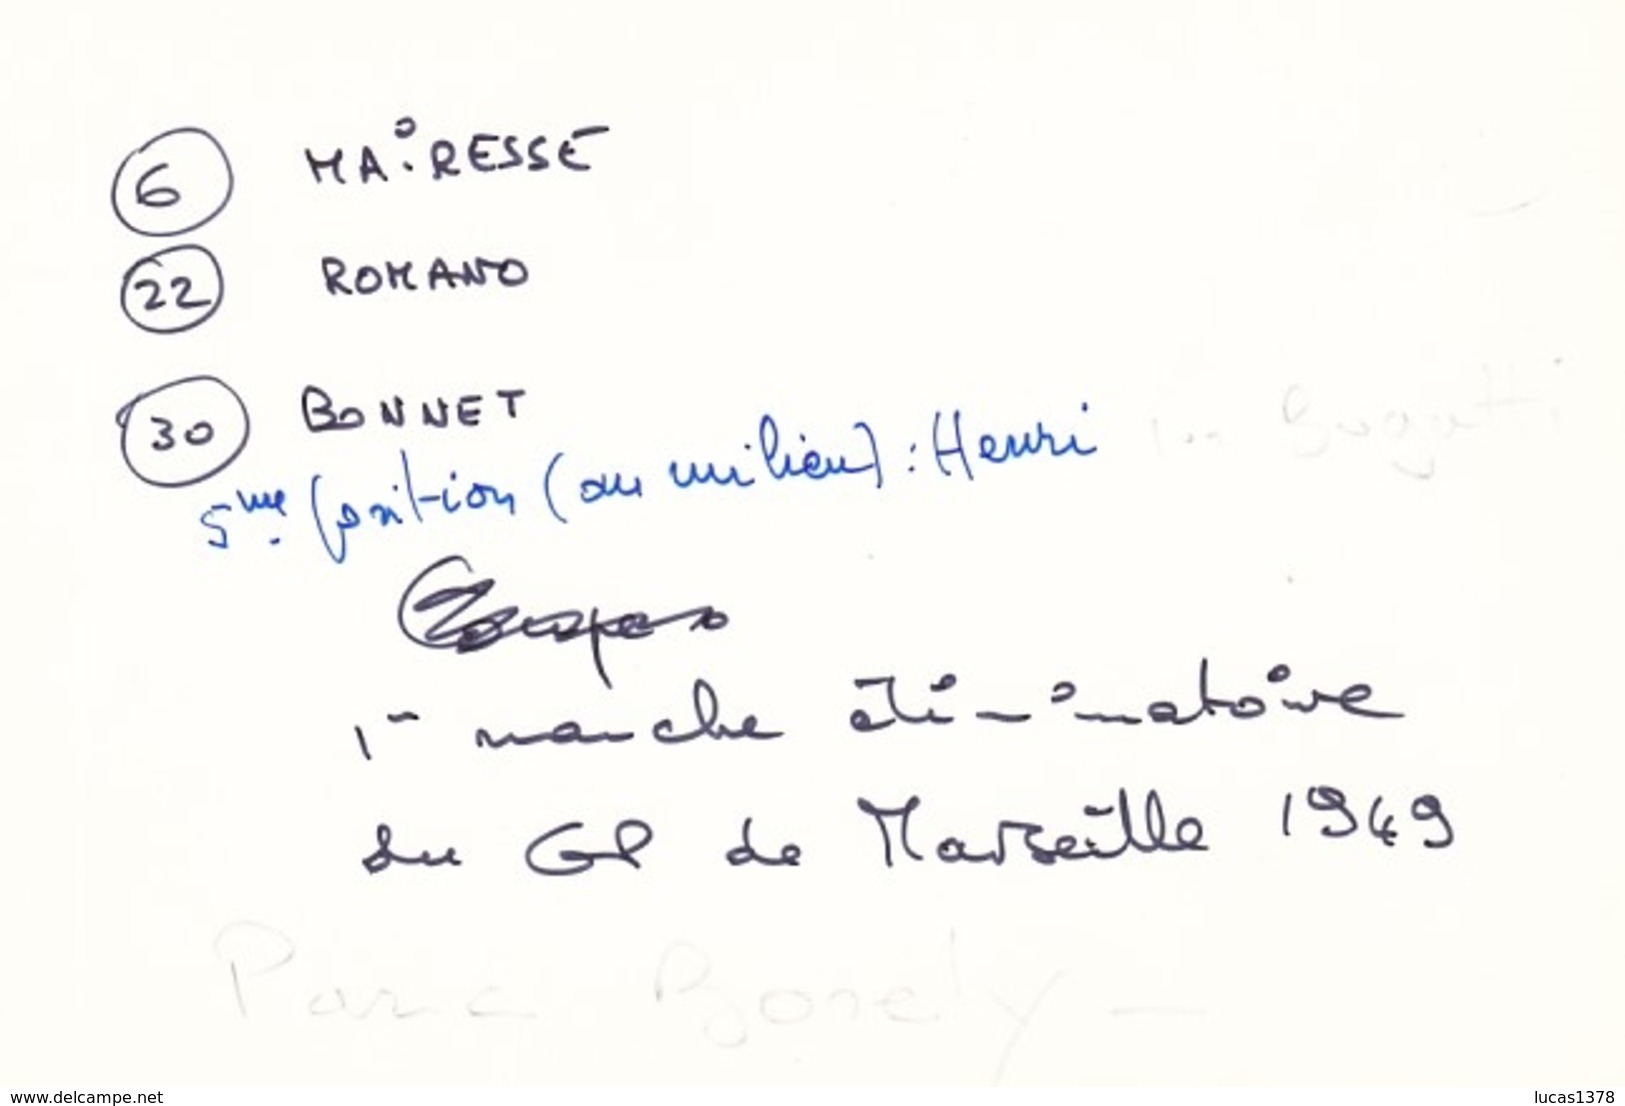 6 MAiRESSE
22 ROMANO
30 BONNET
5me position (au milieu) : Henri
1re manche éliminatoire
du GP de Marseille 1949
Bugatti
Parc Borely -
www.delcampe.net
lucas1378